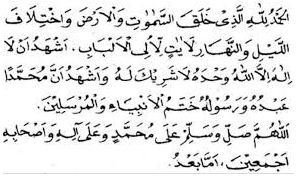 الحَمْدُ لِلّٰهِ الَّذِىْ خَلَقَ السَّمٰوٰتِ وَالْاَرْضَ وَاخْتِلَافَ
اللَّيْلِ وَالنَّهَارِ لَاٰيٰتٍ لِاُولِى الْاَلْبَابِ. اَشْهَدُ اَنْ لَا
اِلٰهَ اِلَّا اللّٰهُ وَحْدَهُ لَا شَرِيْكَ لَهُ وَاَشْهَدُ اَنَّ مُحَمَّدًا
عَبْدُهُ وَرَسُوْلُهُ خَتْمُ الْاَنْبِيَاءِ وَالْمُرْسَلِيْنَ.
اَللّٰهُمَّ صَلِّ وَسَلِّمْ عَلٰى مُحَمَّدٍ وَعَلٰى اٰلِهِ وَاَصْحَابِهِ
اَجْمَعِيْنَ، اَمَّا بَعْدُ.